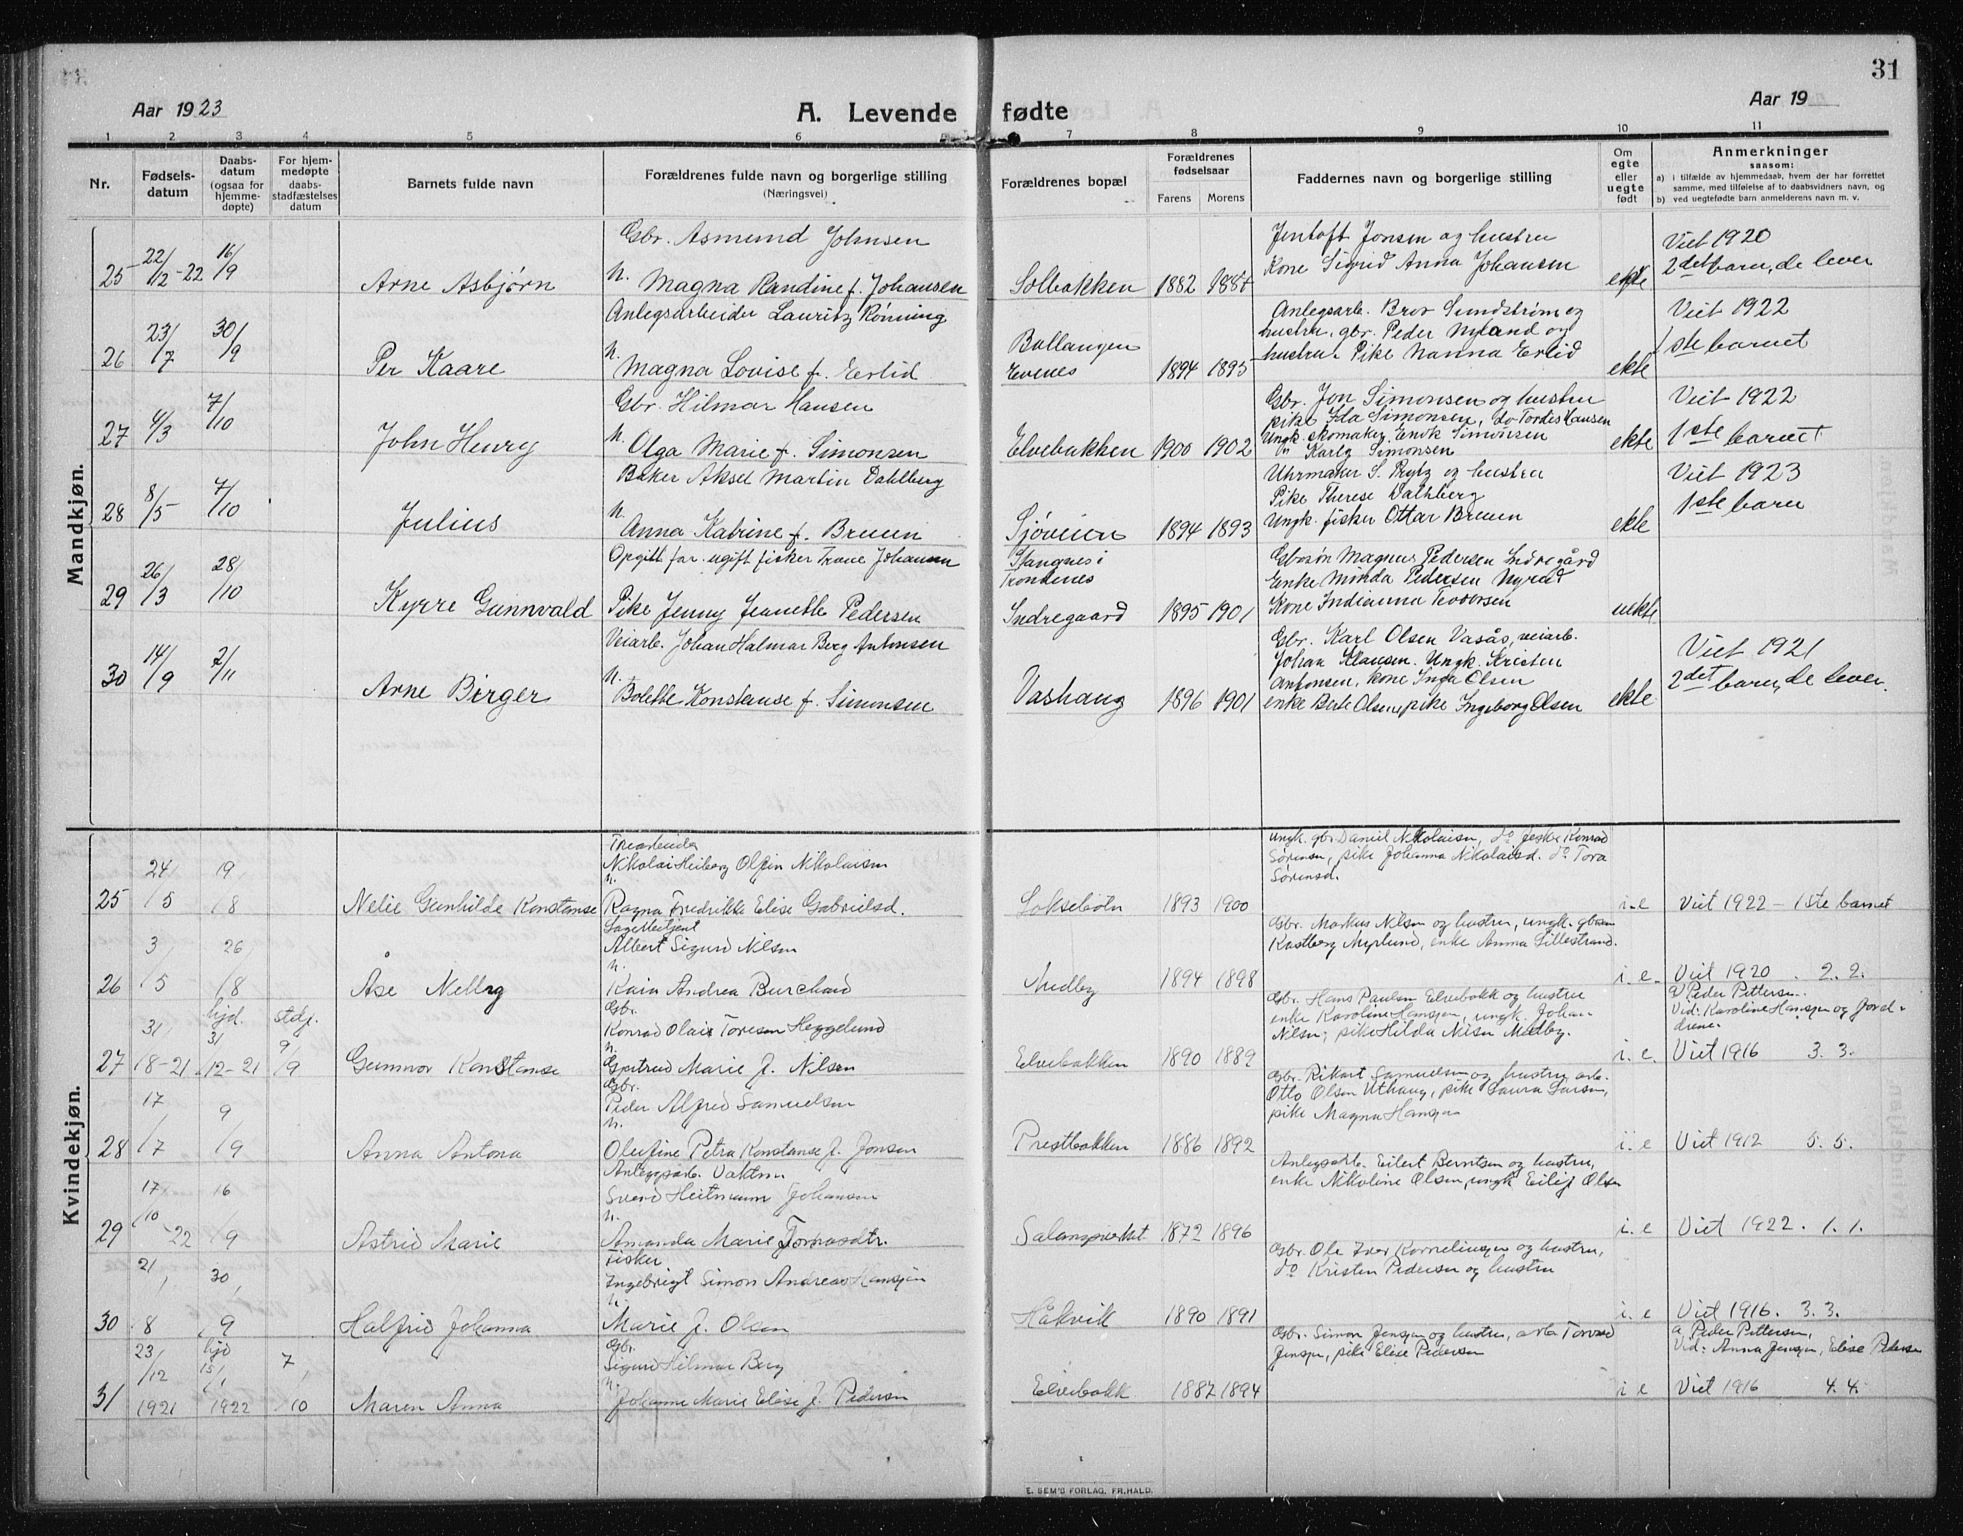 31
Aar 1923
A. Levende fødte
Aar 19
1 2 3 4 5 6 7 8 9 10 11
Nr.
Fødsels-
datum
Daabs-
datum
(ogsaa for
hjemme-
døpte)
For hjem-
medøpte
daabs-
stadfæstelses
datum
Barnets fulde navn
Forældrenes fulde navn og borgerlige stilling
(Næringsvei)
Forældrenes bopæl
Forældrenes
fødselsaar
Farens Morens
Faddernes navn og borgerlige stilling
Om
egte
eller
uegte
født
Anmerkninger
saasom:
a) i tilfælde av hjemmedaab, hvem der har forrettet
samme, med tilføielse af to daabsvidners navn, og
b) ved uegtefødte barn anmelderens navn m. v.
Mandkjøn.
25 22/12-22 16/9 Arne Asbjørn
Gbr. Asmund Johnsen
h. Magna Randine f. Johansen
Solbakken 1882
Jentoft Jonsen og hustru
Kone Sigrid Anna Johansen
ekte
Viet 1920
2det barn, de lever
26 23/7 30/9 Per Kaare
Anlegsarbeider Lauritz Rønning
h. Magna Lovise f. Erlid
Ballangen
Evenes
1894 1895
Anlegsarb. Bror Sundstrøm og
hustru, gbr. Peder Nyland og
hustru. Pike Nanna Erlid
ekte
Viet 1922
1ste barnet
27 4/3 7/10 John Henry
Gbr. Hilmar Hansen
h. Olga Marie f. Simonsen
Elvebakken 1900 1902
Gbr. Jon Simonsen og hustru
pike Ida Simonsen, do Tordis Hansen
Ungk. skomaker Simonsen
Simonsen
ekte
Viet 1922
1ste barnet
28 8/5 7/10 Julius
Baker Aksel Martin Dahlberg
h. Anna Katrine f. Bruun
Sjøveien 1894 1893
Uhrmaker S. Prytz og hustru
Pike Therese Dahlberg
Ungk. fisker Ottar Bruun
ekte
Viet 1923
1ste barn
29 26/3 28/10 Kyrre Gunnvald
Opgitt far. ugift fisker Johansen
Pike Jenny Jeanette Pedersen
Stangnes i
Trondenes
Indregaard 1895 1901
Gbrsøn Magnus Pedersen Indregård
Enke Minda Pedersen
Kone Indianna Teodorsen
uekte
30 14/9 2/11 Arne Birger
Veiarb. Johan Halmar Berg Antonsen
h. Bolette Konstanse f. Simonsen
Vashaug 1896 1901
Gbr. Karl Olsen Vasås, veiarb.
Johan Klausen. Ungk. Kristen
Antonsen, kone Inga Olsen
enke Berte Olsen, pike Ingeborg Olsen
ekte
Viet 1921
2det barn, de lever.
Kvindekjøn.
25 24/5 19/8 Nelie Gunhilde Konstanse
Nikolai Heiberg Olfin Nikolaisen
h.
Ragna Fredrikke Elise Gabrielsd.
Loksebotn 1893 1900
Ungk. gbr. Daniel Nikolaisen, do fisker Konrad
Sørensen, pike Johanna Nikolaisd. do Tora
Sørensd.
i.e Viet 1922 - 1ste barnet
26 3/5 26/8 Åse Nelly
Lagerbetjent
Albert Sigurd Nilsen
h.
Kaia Andrea Burchard
Medby 1894 1898
Gbr. Markus Nilsen og hustru, ungk. gbrsøn
Kastberg Myrlund, enke Anna Lillestrand.
i.e. Viet 1920. 2. 2.
27 31/8-21 hjd. 31/12-21 stdf. 9/9 Gunnvor Konstanse
Gbr.
Konrad Olai Toresen Heggelund
h.
Gjertrud Marie f. Nilsen
Elvebakken 1890 1889
Gbr. Hans Paulsen Elvebakk og hustru
enke Karoline Hansen, ungk. Johan
Nilsen; pike Hilda Nilsen Medby.
i.e.
a) Peder Pettersen.
Vid: Karoline Hansen og Jord-
drene.
Viet 1916 3. 3.
28 17/7 9/9 Anna Antona
Gbr.
Peder Alfred Samuelsen
h.
Olufine Petra Konstanse f. Jonsen
Prestbakken 1886 1892
Gbr. Rikart Samuelsen og hustru arb.
Otto Olsen Uthaug, pike Laura Larsen,
pike Magna Hansen
i.e Viet 1912 5. 5.
29 17/10-22 16/9 Astrid Marie
Anleggsarb.
Heitmann Johansen
h.
Amanda Marie Tomasdtr.
Salangsverket 1872 1896
Anlegsarb. Eilert Berntsen og hustru,
enke Nikoline Olsen, ungk Eilif Olsen
i.e Viet 1922. 1. 1.
30 21/8 30/9 Halfrid Johanna
Fisker
Ingebrigt Simon Andreas Hansen
h.
Marie f. Olsen
Håkvik 1890 1891
Gbr. Ole Iver Korneliussen og hustru,
do Kristen Pedersen og hustru
i.e Viet 1916. 3. 3.
31 23/12 1921 hjd 15/1 1922 7/10 Maren Anna
Gbr.
Sigurd Hilmar Berg
h.
Johanne Marie Elise f. Pedersen
Elvebakk 1887 1894
Gbr. Simon Jensen og hustru, arb.
Jensen, pike Elise Pedersen
i.e
a) Peder Pettersen,
Vid: Anna Jensen, Elise Pedersen
Viet 1916 4. 4.
E. SEM'S FORLAG, FR.HALD.